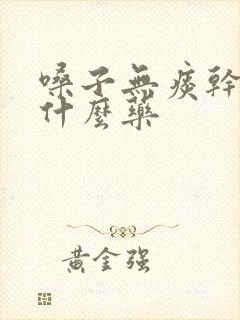 嗓子無痰幹
什麼藥
黃金强